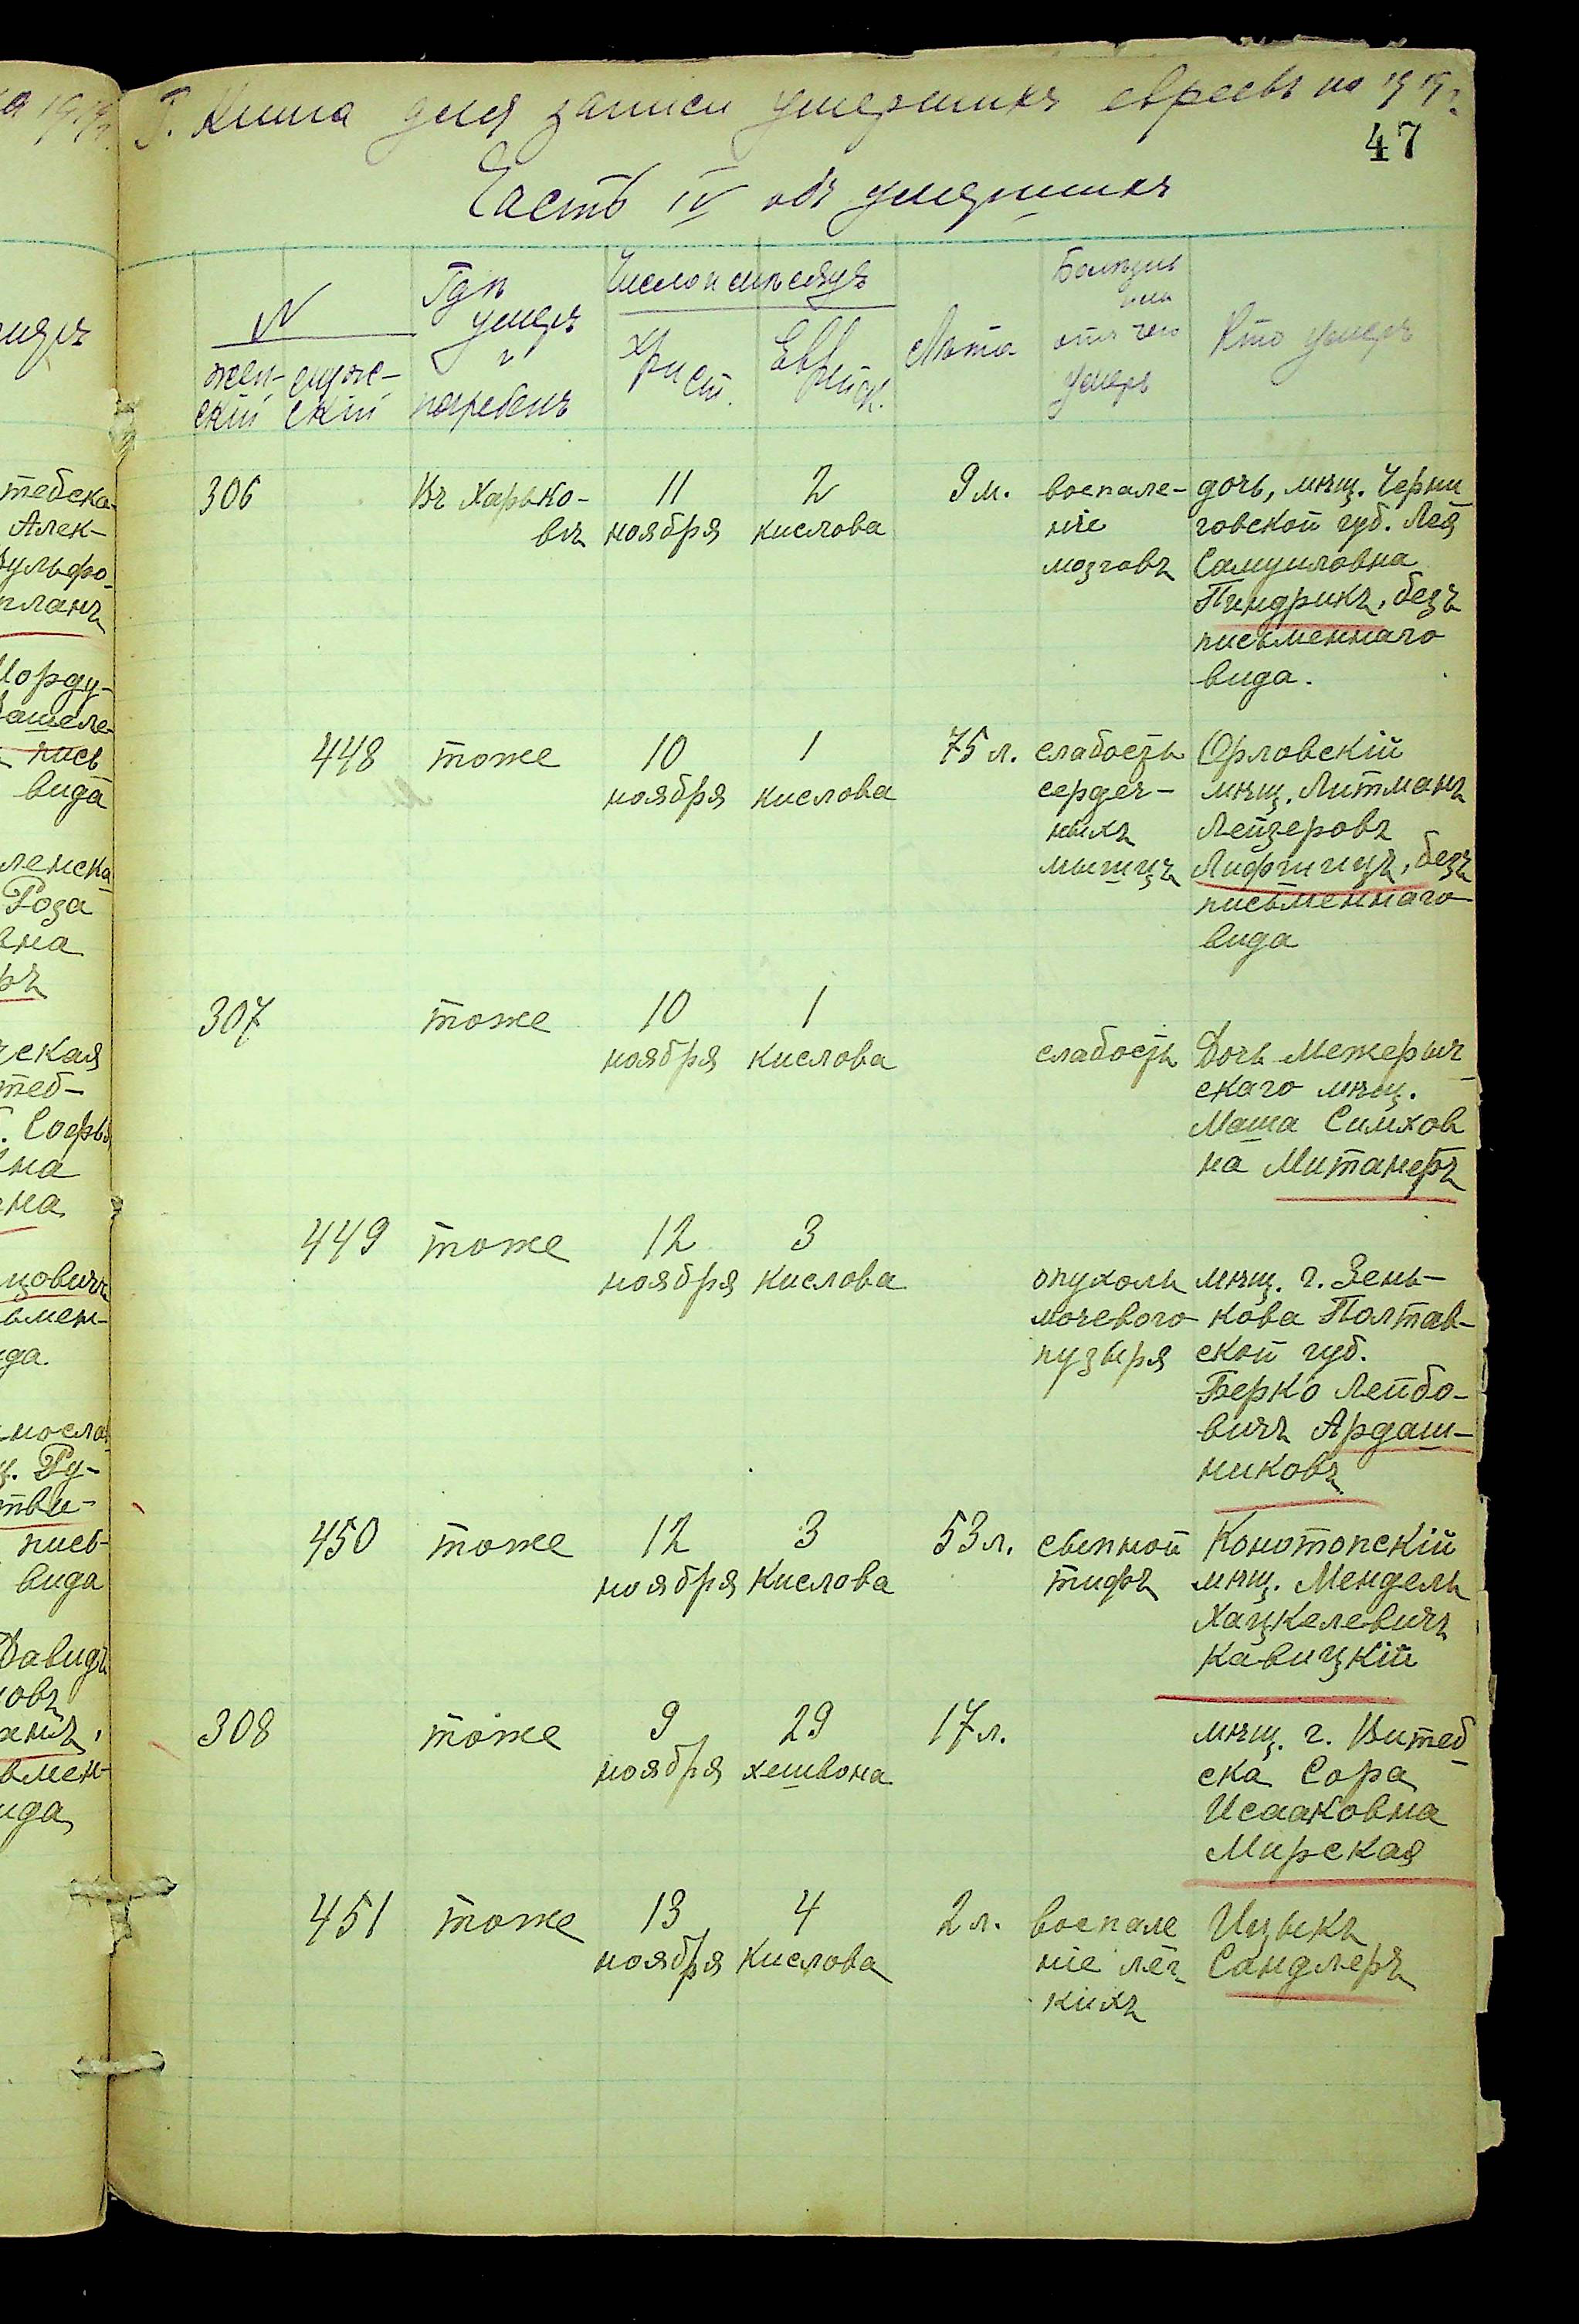 Книга для записи умершихъ евреевъ на 1919 г.
47
Часть IV объ умершихъ
№
жен-
скій
муже-
скій
Гдѣ
умеръ
и
погребенъ
Число и мѣсяцъ
Христ.
Еврейск.
Лѣта
Болѣзнь
или
отъ чего
умеръ
Кто умеръ
306
Въ Харько-
вѣ
11
ноября
2
кислова
9 м.
воспале-
ніе
мозговъ
дочь, мѣщ. Черни
говской губ. Лея
Самуиловна
Пиндрикъ, безъ
письменнаго
вида.
448
тоже
10
ноября
1
кислова
75 л.
слабость
сердеч-
ныхъ
мышцъ
Орловскій
мѣщ. Литманъ
Лейзеровъ
Лифшицъ, безъ
письменнаго
вида
307
тоже
10
ноября
1
кислова
слабость
Дочь Межерич-
скаго мѣщ.
Маша Симхов
на Митанеръ
449
тоже
12
ноября
3
кислова
опухоль
мочевого
пузыря
мѣщ. г. Зень-
кова Полтав-
ской губ.
Берко Лейбо-
вичъ Ардаш-
никовъ
450
тоже
12
ноября
3
Кислова
53 л.
сыпной
тифъ
Конотопскій
мѣщ. Мендель
Хацкелевичъ
Кавицкій
308
тоже
9
ноября
29
хешвона
17 л.
мѣщ. г. Витеб
ска Сора
Исааковна
Мирская
451
тоже
13
ноября
4
Кислова
2 л.
воспале
ніе лёг
кихъ
Ицыкъ
Сандлеръ